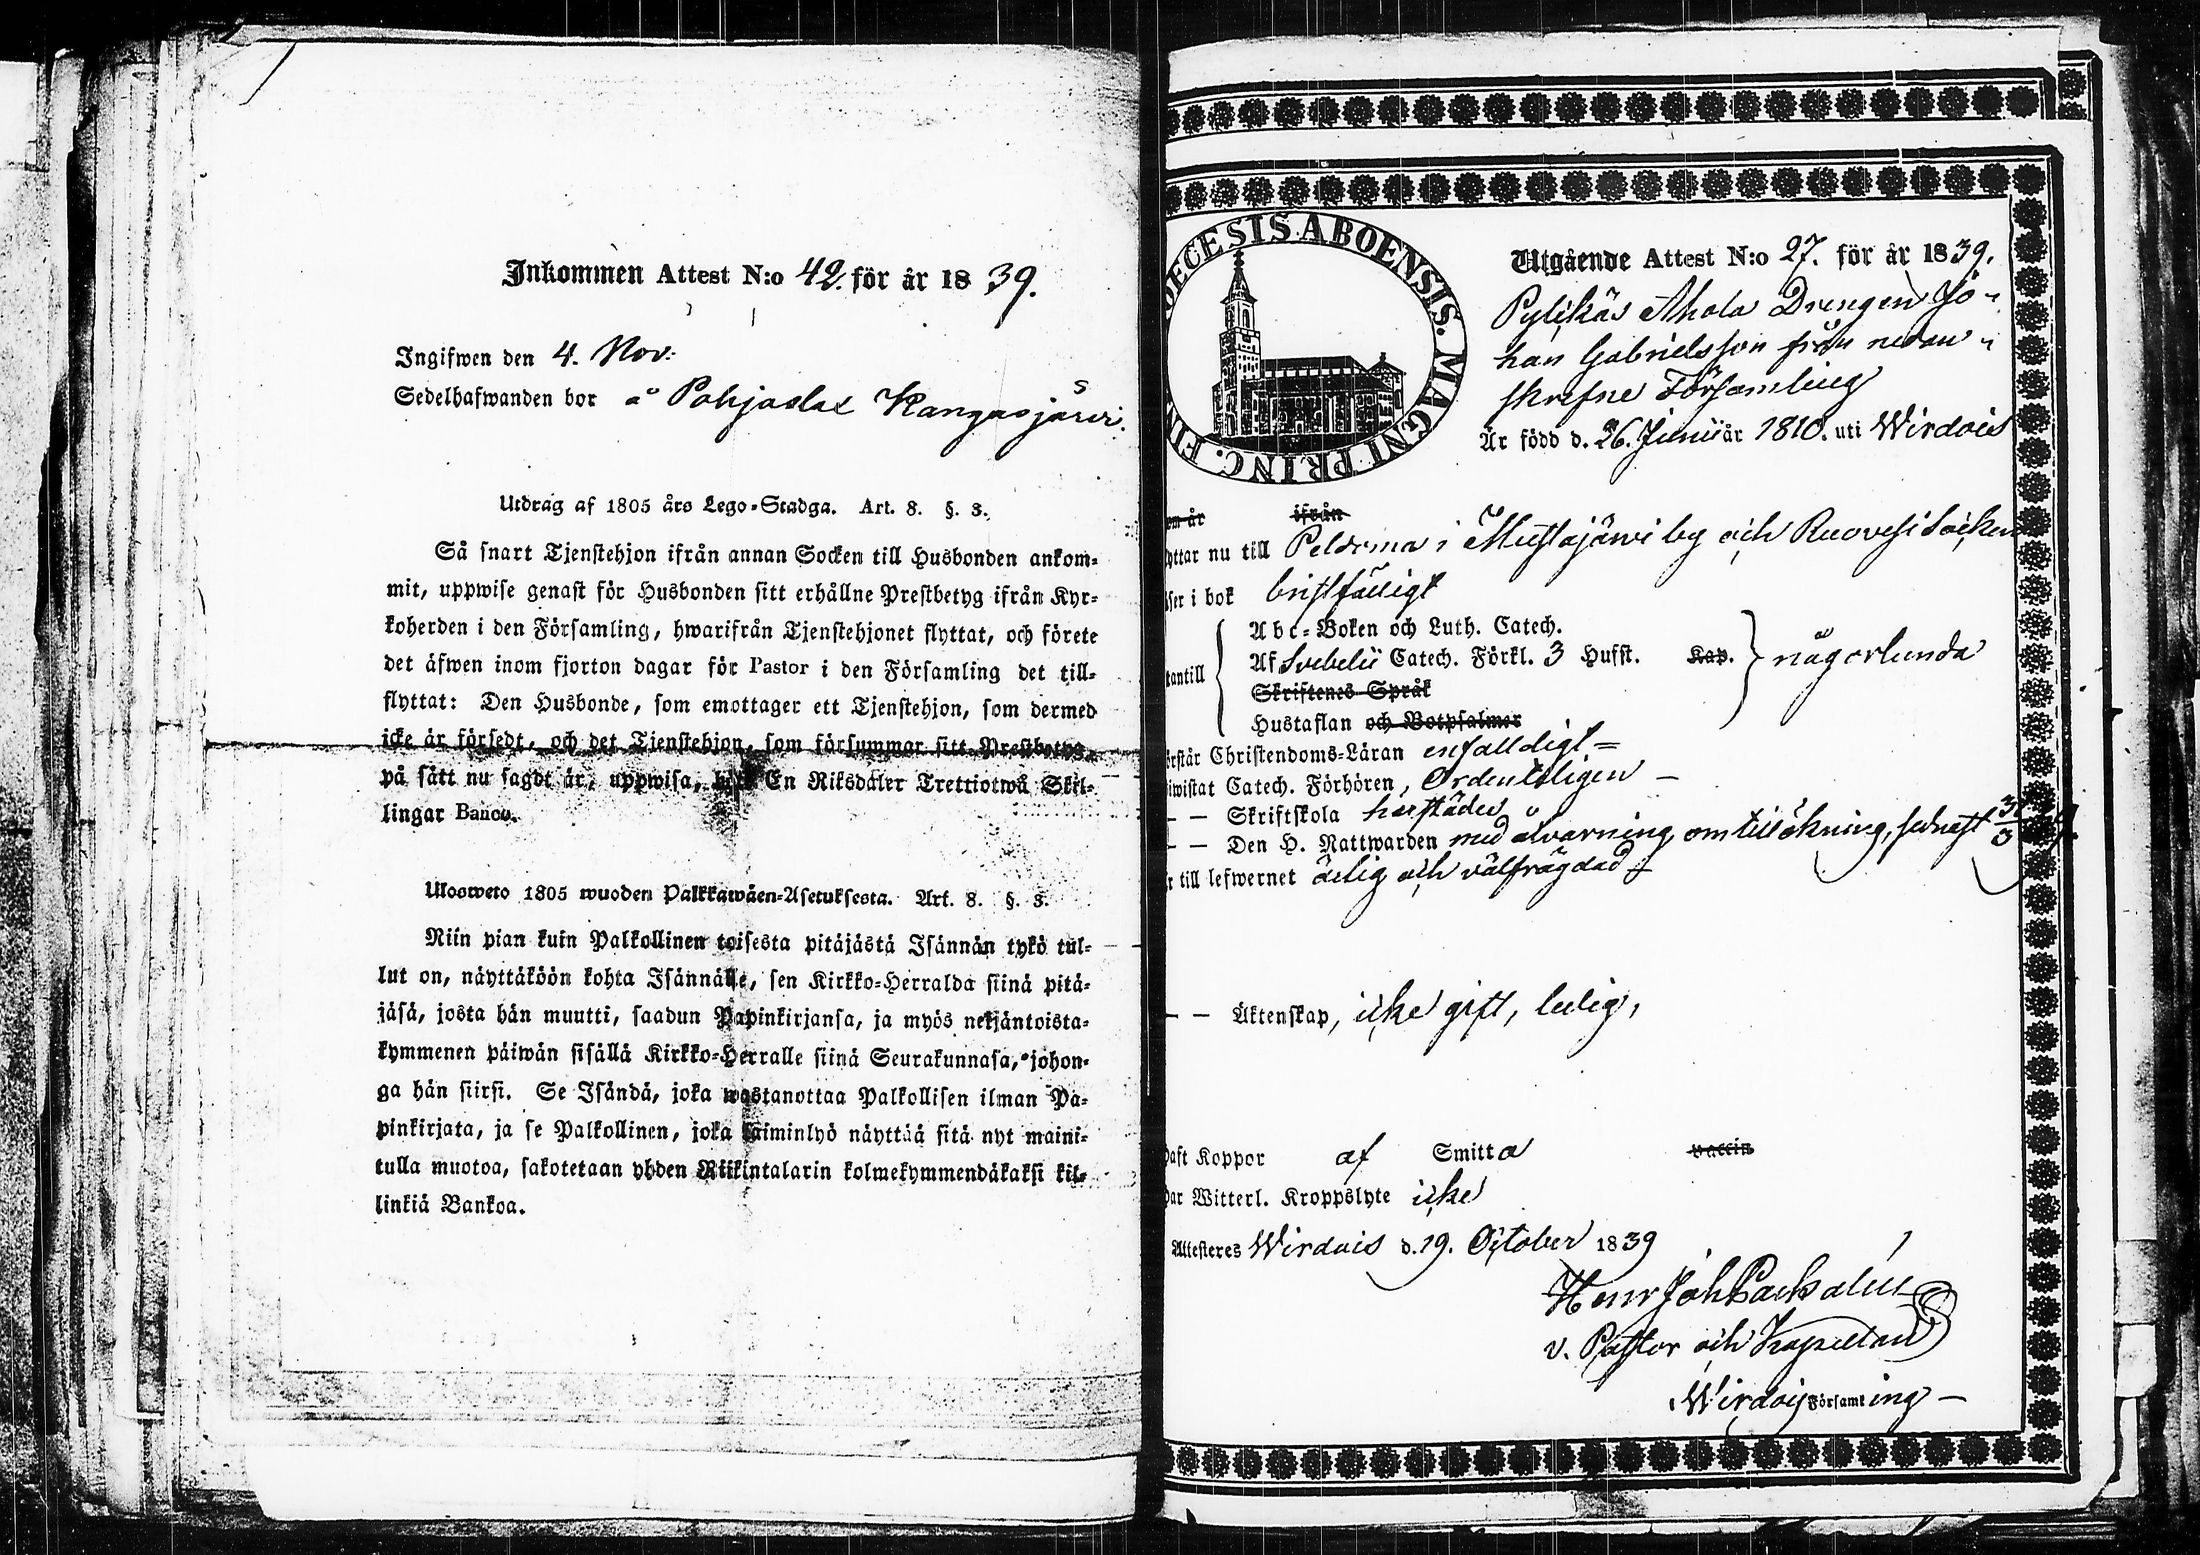 Inkommen Attest N:o 42. för år 1839.
Ingifwen den 4. Nov:
Sedelhafwanden bor å Kangasjärvi.
Utdrag af 1805 års Lego-Stadga. Art. 8. §. 3.
Så snart Tjenstehjon ifrån annan Socken till Husbonden ankom-
mit, uppwise genast för Husbonden sitt erhållne Prestbetyg ifrån Kyr-
koherden i den Församling, hwarifrån Tjenstehjonet flyttat, och förete
det äfwen inom fjorton dagar för Pastor i den Församling det till-
flyttat: Den Husbonde, som emottager ett Tjenstehjon, som dermed
icke är försedt, och det Tjenstehjon, som försummar sitt Prestbetyg
på sätt nu sagdt är, uppwisa, böte En Riksdaler Trettiotwå Skil-
lingar Banco.
Ulosweto 1805 wuoden Palkkawäen-Asetuksesta. Art. 8. §. 3.
Niin pian kuin Palkollinen toisesta pitäjästä Isännän tykö tul-
lut on, näyttäköön kohta Isännälle, sen Kirkko-Herralda siinä pitä-
jäsä, josta hän muutti, saadun Papinkirjansa, ja myös neljäntoista-
kymmenen päiwän sisällä Kirkko-Herralle siinä Seurakunnasa, johon-
ga hän siirsi. Se Isändä, joka wastanottaa Palkollisen ilman Pa-
pinkirjata, ja se Palkollinen, joka laiminlyö näyttää sitä nyt maini-
tulla muotoa, sakotetaan yhden Riikintalarin kolmekymmendäkaksi kil-
linkiä Bankoa.
OECESIS ABOENSIS. MAGNI PRINC. FIN
Utgående Attest N:o 27. för år 1839.
Pylikäs Ahola Drengen Jo-
han Gabrielsson från nedan-
skrefne Församling
Är född d. 26. Junii år 1810. uti Wirdois
om år ifrån
yttar nu till i Mustajärwi by och Ruovesi Socken
äser i bok bristfälligt
tantill
Abc-Boken och Luth. Catech.
Af Svebelii Catech. Förkl. 3 Hufst. Kap.
Skriftenes Språk
Hustaflan och Botpsalmer
någorlunda
örstår Christendoms-Läran enfalldigt
iwistat Catech. Förhören, Ordenteligen
— — Skriftskola härstädes
— — Den H. Nattwarden med alvarning om tillökning, sednast
r till lefwernet ärlig och välfrägdad
— — Äktenskap, icke gift, ledig,
haft Koppor af Smitta vaccin
har Witterl. Kroppslyte icke
Attesteres Wirdois d. 19. October 1839
Henr Joh
v. Pastor och Kapellan
Wirdois Församling